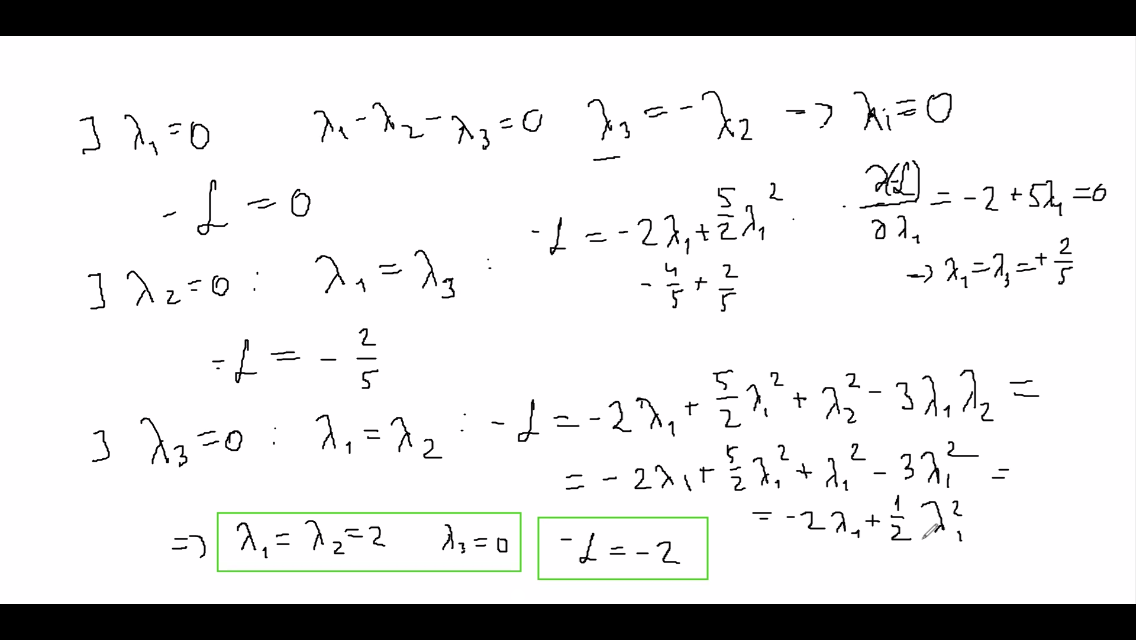 ∃ λ₁=0   λ₁-λ₂-λ₃=0   λ₃=-λ₂ → λᵢ=0
-ℒ = 0
-ℒ = -2λ₁+5/2 λ₁²   ∂(-ℒ)/∂λ₁ = -2+5λ₁=0
∃ λ₂=0 :   λ₁=λ₃ :
-4/5 + 2/5   → λ₁=λ₃=+2/5
-ℒ = -2/5
∃ λ₃=0 :   λ₁=λ₂ :   -ℒ = -2λ₁+5/2 λ₁²+λ₂²-3λ₁λ₂ =
= -2λ₁+5/2 λ₁²+λ₁²-3λ₁² =
= -2λ₁+1/2 λ₁²
⇒ λ₁=λ₂=2   λ₃=0   -ℒ=-2